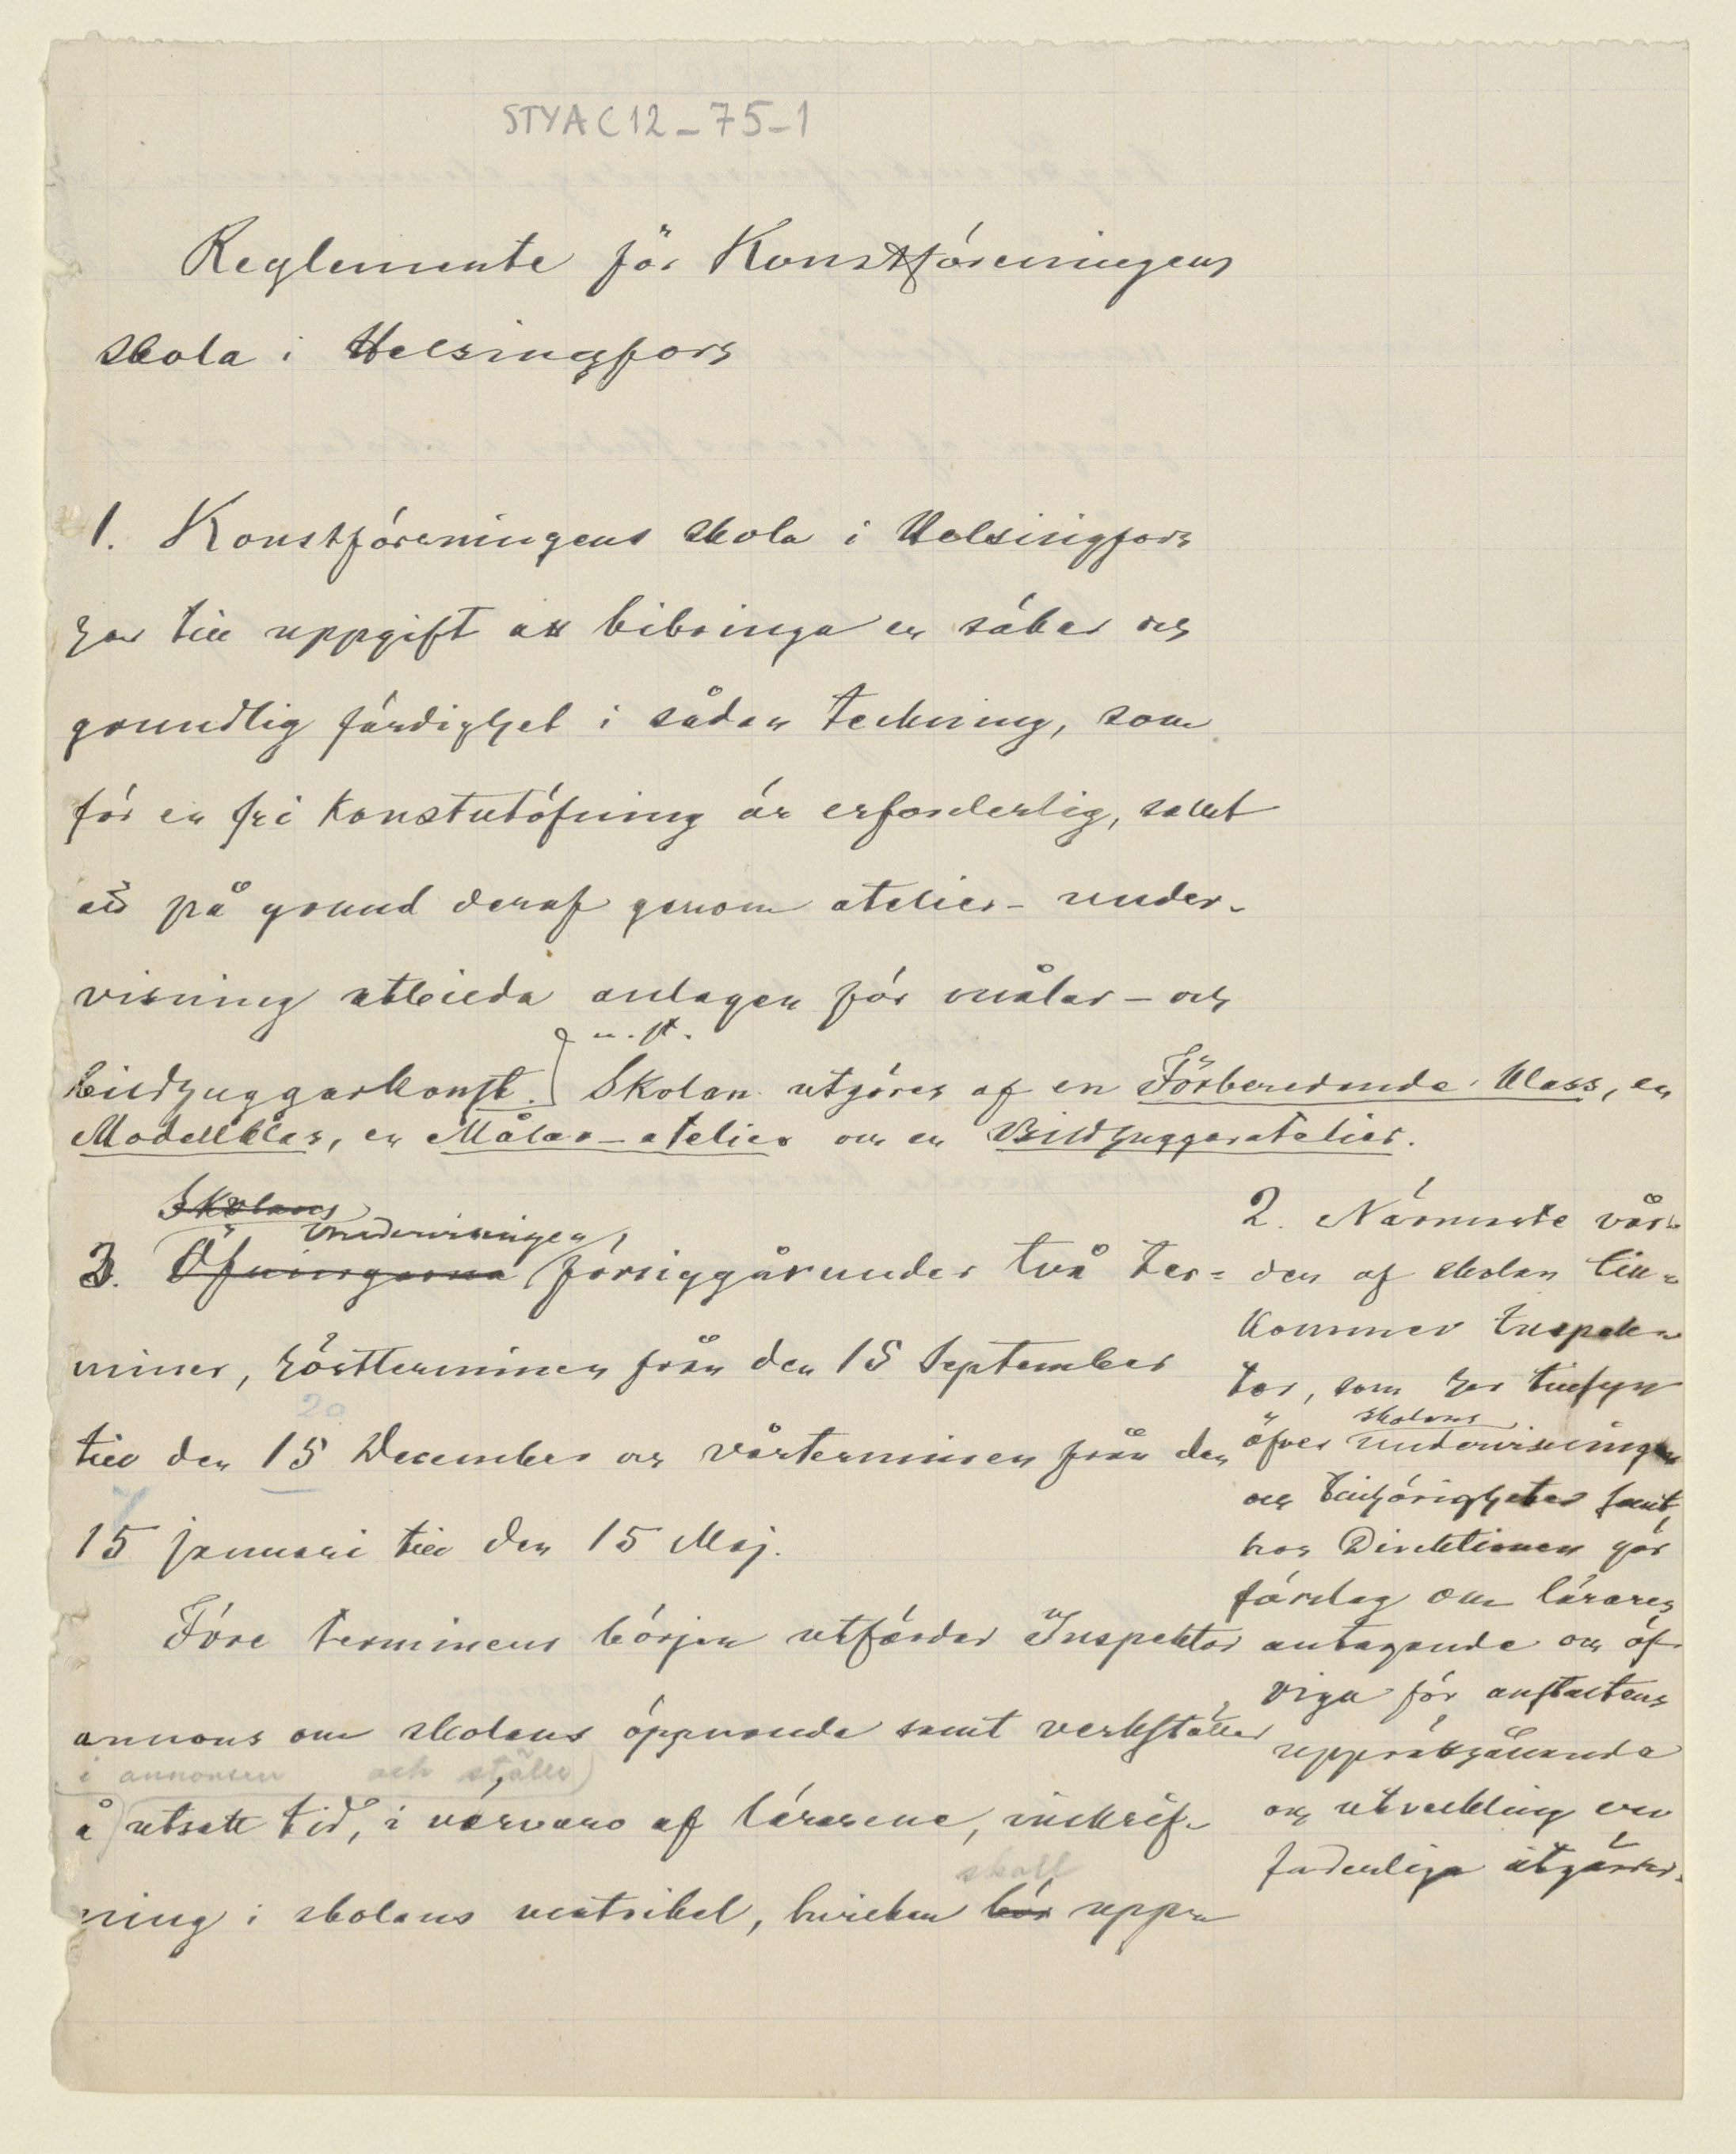 STYA C12-75-1
Reglemente för Konstföreningens
skola i Helsingfors
1. Konstföreningens skola i Helsingfors
har till uppgift att bibringa en säker och
grundlig färdighet i sådan teckning, som
för en fri konstutöfning är erforderlig, samt
att på grund deraf genom atelier-under-
visning utbilda anlagen för målar- och
bildhuggarkonst.
n. st.
Skolan utgöres af en Förberedande Klass, en
Modellklass, en Målar-atelier och en Bildhuggaratelier.
Skolans
Undervisningen
3. Öfningarna försiggår under två ter=
miner, höstterminen från den 15 September
20
till den 15 December och vårterminen från den
7
15 januari till den 15 Maj.
Före terminens början utfärdar Inspektor
annons om skolans öppnande samt verkställer
i annonsen och ställe
å utsatt tid, i närvaro af lärarene, inskrif-
skall
ning i skolans matrikel, hvilken bör upp-
2. Närmaste vår-
den af skolan till-
kommer Inspek-
tor, som har tillsyn
skolans
öfver undervisningen
och tillhörigheter samt
hos Direktionen gör
förslag om lärares
antagande och öf-
riga för anstaltens
upprätthållande
och utveckling
åtgärder.